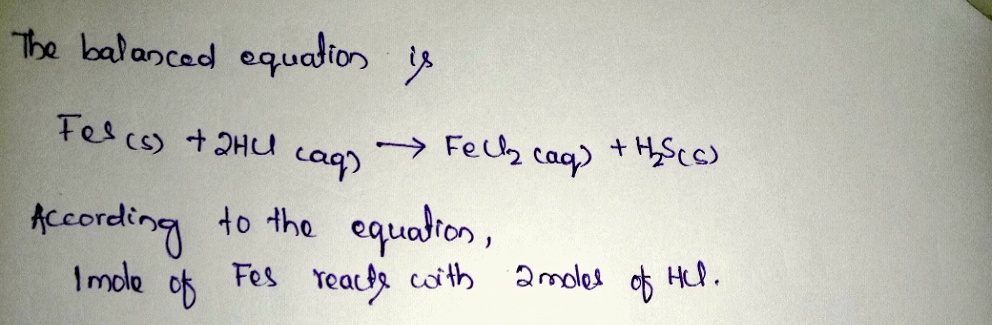 The balanced equation is
FeS (s) + 2HCl (aq) → FeCl₂ (aq) + H₂S(s)
According to the equation,
1 mole of FeS reacts with 2 moles of HCl.